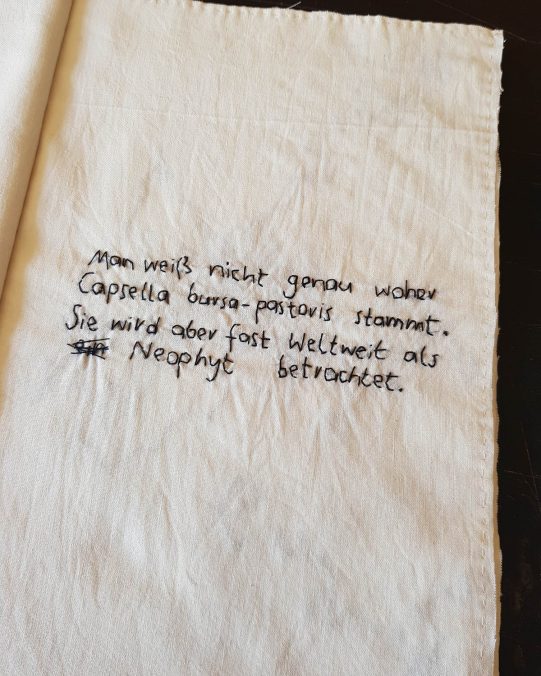 Man weiß nicht genau woher
Capsella bursa-pastoris stammt.
Sie wird aber fast Weltweit als
Neophyt betrachtet.